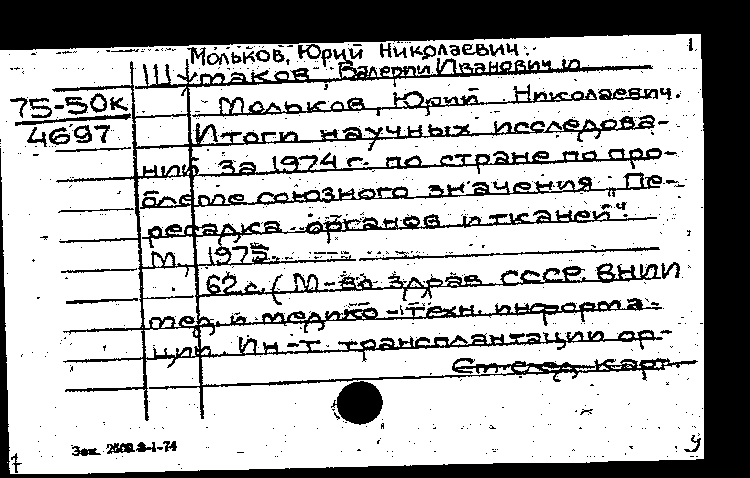 Мольков, Юрий Николаевич.
1
Шумаков, Валерий Иванович и
75-50к
4697
Мольков, Юрий Николаевич.
Итоги научных исследова-
ний за 1974 г. по стране по про-
блеме союзного значения „Пе-
ресадка органов и тканей".
М., 1975.
62 с. (М-во здрав СССР. ВНИИ
мед. и медико-техн. информа-
ции. Ин-т трансплантации ор-
См. след. карт.
Зак. 2500.3-1-74